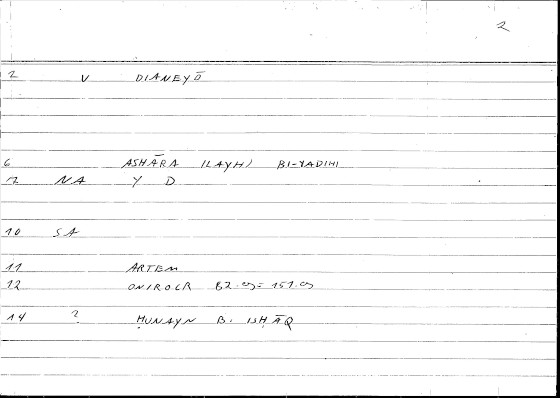 2
2 V DIANEYŌ
6 ASHĀRA ILAYHI BI-YADIHI
7 NA Y D
10 SA
11 ARTEM
12 ONIROCR 82 = 151
14 ? ḤUNAYN B. ISḤĀQ